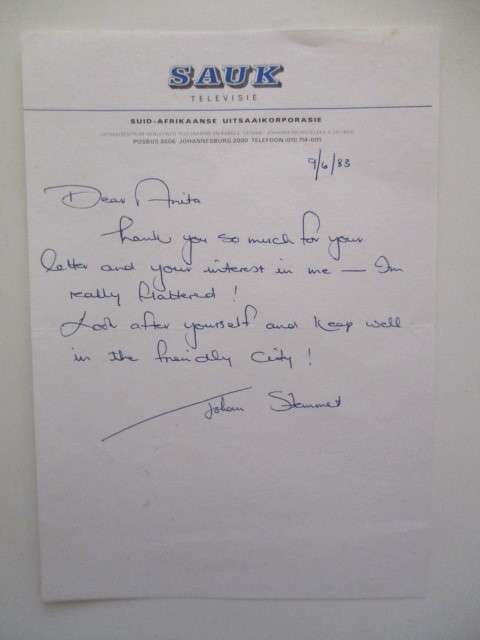 SAUK
TELEVISIE
SUID-AFRIKAANSE UITSAAIKORPORASIE
POSBUS 8606 JOHANNESBURG 2000 TELEFOON (011) 714-9111
9/6/83
Dear Anita
Thank you so much for your
letter and your interest in me — I'm
really flattered !
Look after yourself and keep well
in the friendly City !
Johan Stemmet